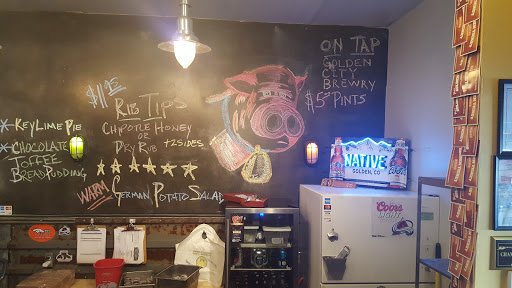 $11.95
RIB TIPS
CHIPOTLE HONEY
OR
DRY RUB +2 SIDES
WARM GERMAN POTATO SALAD
KEY LIME PIE
CHOCOLATE
TOFFEE
BREAD PUDDING
ON TAP
GOLDEN
CITY
BREWRY
$5 PINTS
NATIVE
GOLDEN, CO
Coors
LIGHT